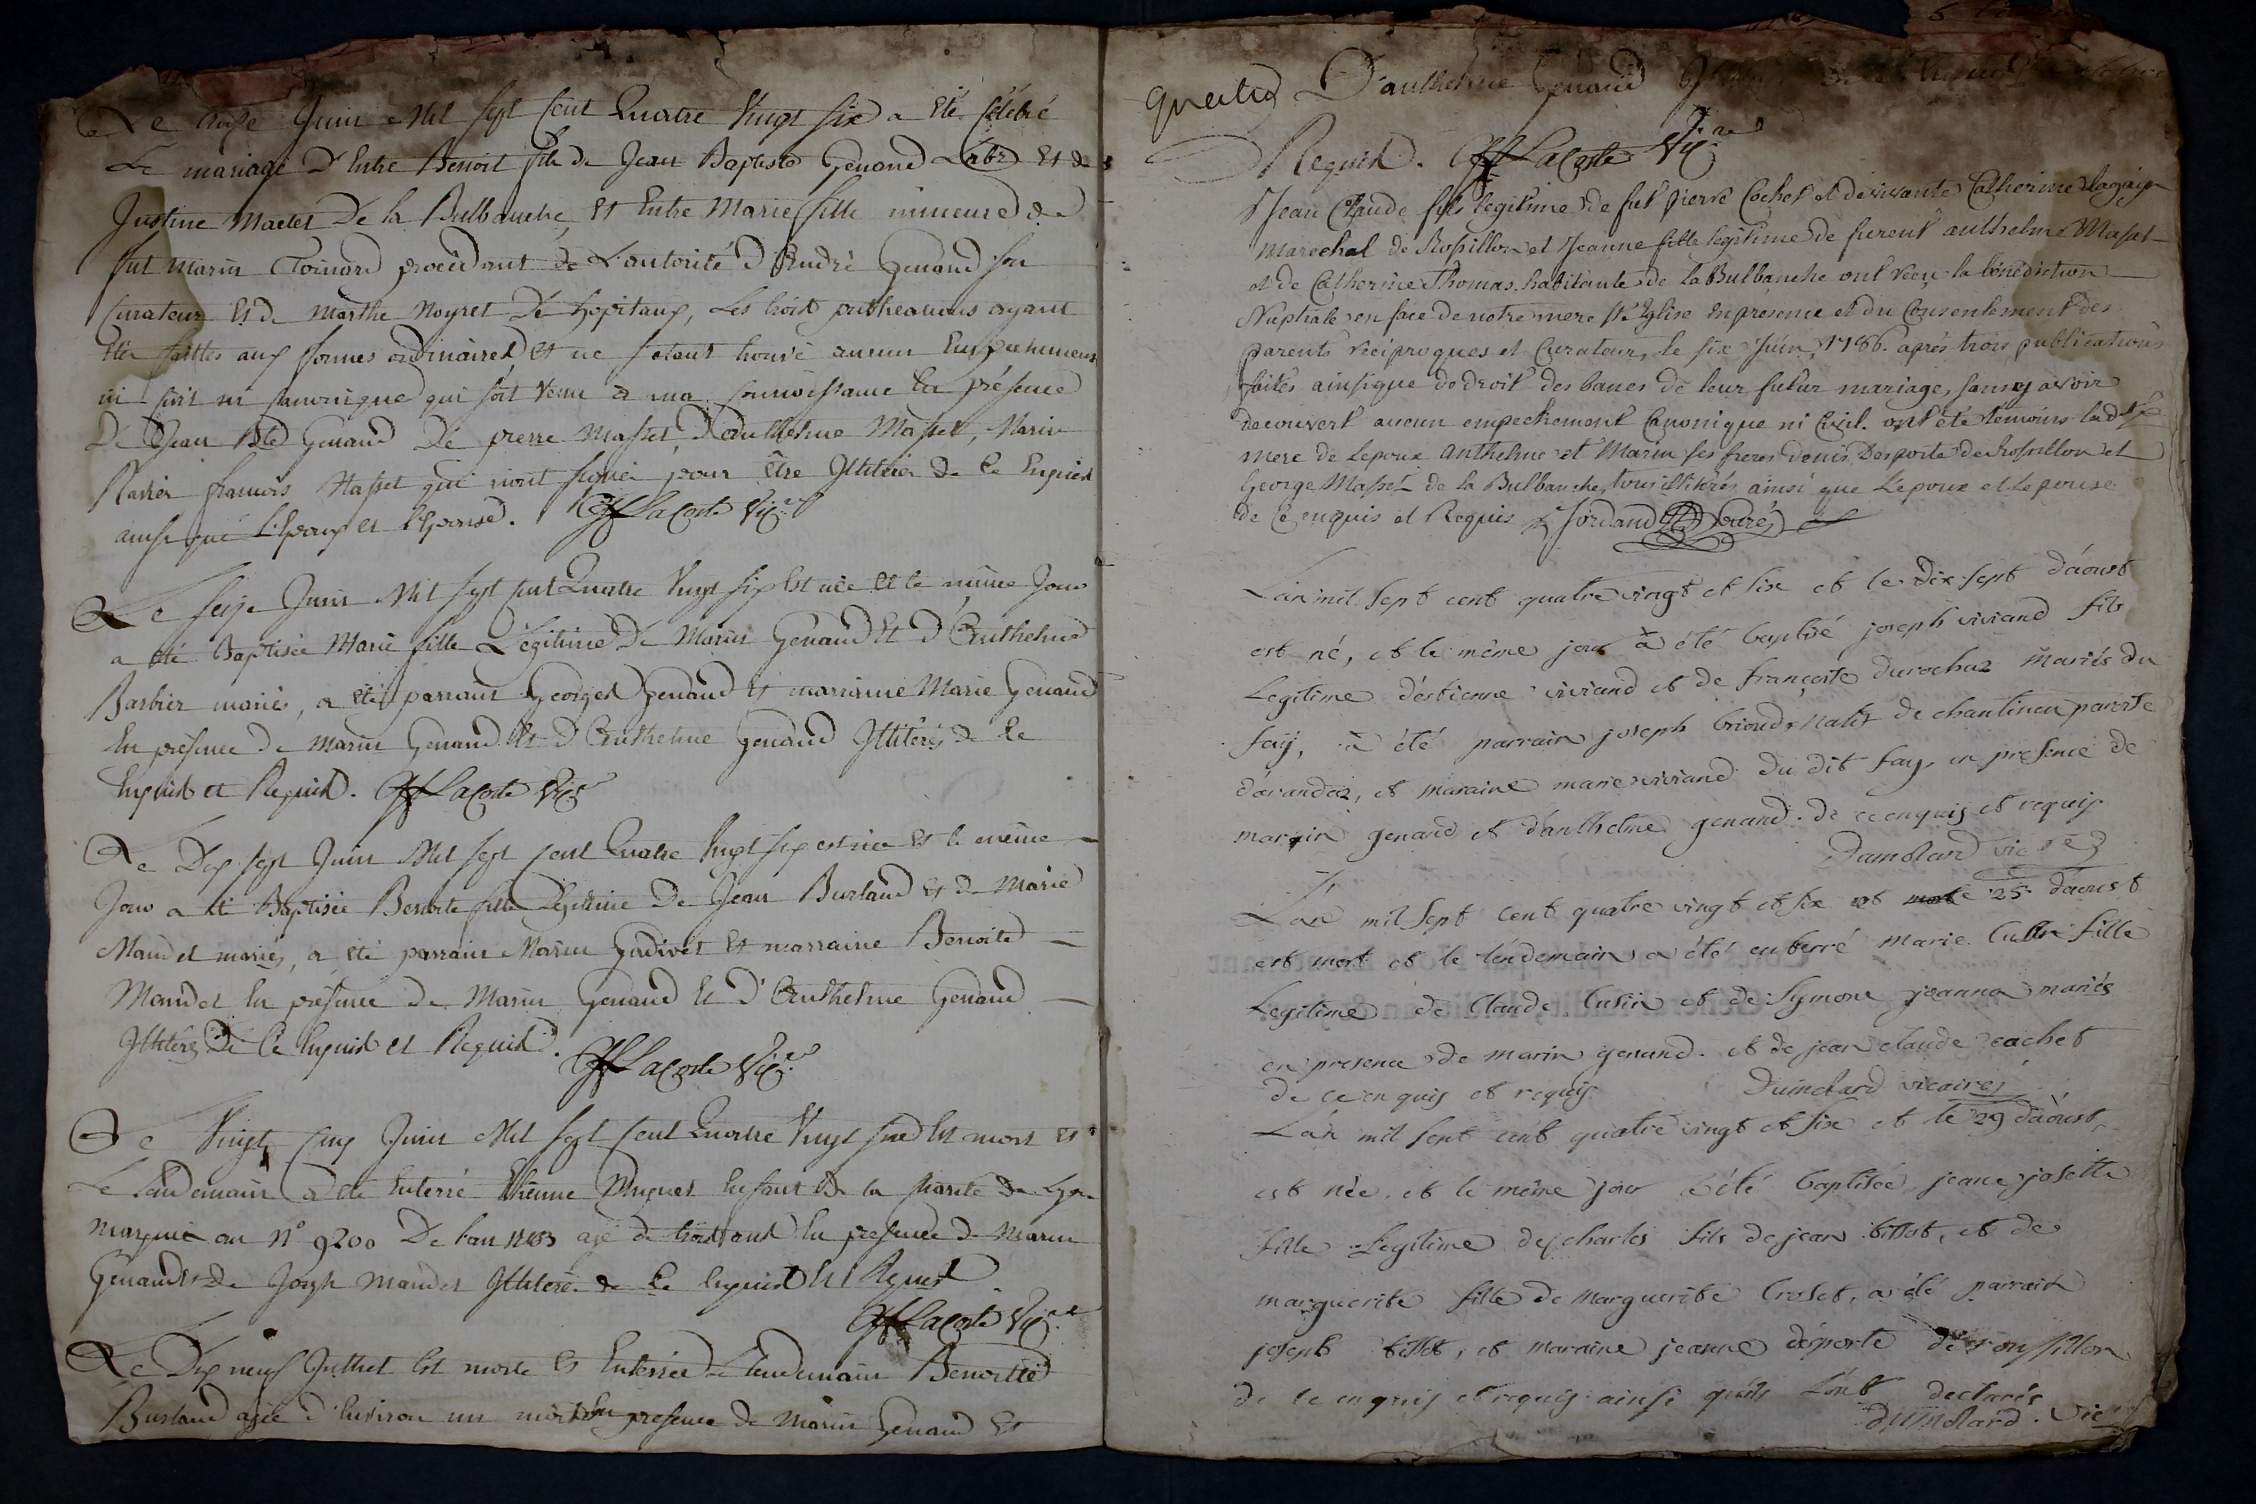 Le onze Juin Mil sept Cent Quatre Vingt six a été Célébré
Le mariage D'Entre Benoit fils de Jean Baptiste Genand Labr Et de
Justine Maclet De la Bulbanche, Et Entre Marie fille mineure de
fut Marin Toinard procédant de L'autorité d'André Genand son
Curateur Et de Marthe Noyret De hopitaux, Les trois publications ayant
été faittes aux formes ordinaires et ne setant trouvé aucun Empechement
ni Civil ni Canonique qui soit venu à ma connoissance En présence
De Jean Bte Genand De pierre Masset, D'anthelme Masset, Marin
françois Masset qui n'ont signé pour être Illiterés de Ce Enquis
ainsi que L'Epoux et l'Epouse. Lacoste Vicre
Le seize Juin Mil sept cent Quatre Vingt six Est née et le même Jour
a été Baptisée Marie fille Légitime De Marin Genand Et D'Anthelme
Barbier mariés, a été parrain Georges Genand et marraine Marie Genand
En présence de Marin Genand Et D'Anthelme Genand Illiterés de Ce
Enquis et Requis. Lacoste Vicre
Le Dix sept Juin Mil sept cent Quatre Vingt six est née Et le même
Jour a été Baptisée Benoite fille Légitime De Jean Burland Et de Marie
Mandet mariés, a été parrain Marin Gudivet Et marraine Benoite
Mandet En présence De Marin Genand Et D'Anthelme Genand
Illiterés De Ce Enquis et Requis. Lacoste Vicre
Le Vingt Cinq Juin Mil sept Cent Quatre Vingt six Est mort Et
Le Lendemain a été Enterré Etienne Muguet Enfant De la Charité de Lyon
marqué au N° 9200 De l'an 1783 agé de trois ans En présence de Marin
Genand Et De Joseph Mandet Illiterés de Ce Enquis Et Requis
Lacoste Vicre
Le Dix neuf Juillet Est morte Et Enterrée Le Lendemain Benoitte
Burland agée d'Environ un mois En presence de Marin Genand Et
D'anthelme Genand
Requis. Lacoste Vicre
Jean Claude fils legitime de fut pierre Cochet et de vivante Catherine
Marechal de Rossillon et Jeanne fille legitime de furent anthelme Masset
et de Catherine Thomas habitante de la Bulbanche ont reçu la bénédiction
Nuptiale en face de notre mere Ste Eglise en présence et du Consentement des
parents reciproques et Curateur, le six Juin 1786. après trois publications
faites ainsi que de droit des bancs de leur futur mariage, sans y avoir
decouvert aucun empechement Canonique ni Civil. ont été temoins lad.
mere de Lepoux anthelme et Marin ses freres denis Desporte de Rossillon et
George Masset de la Bulbanche, tous illitrés ainsi que L'epoux et Lepouse
de Ce enquis et Requis Jordand Curé
L'an mil sept cent quatre vingt et six et le dix-sept d'aoust
est né, et le même jour à été baptisé joseph viviand fils
Legitime d'estienne viviand et de françoise durochaz mariés du
fay, à été parrain joseph briond, natif de chantinen paroisse
d'arandaz, et maraine marie viviand du dit fay, en presence de
marin genand et d'anthelme genand. de ce enquis et requis
Dumolard vicre
L'an mil sept cent quatre vingt et six et le 25 d'aoust
est mort et le lendemain a été enterré marie Cussin fille
Legitime de Claude Cusin et de Symone jeanna mariés
en presence de marin genand. et de jean claude cachet
de ce enquis et requis Dumolard vicaire
L'an mil sept cent quatre vingt et six et le 29 d'aoust,
est née et le même jour a été baptisée jeane josette
fille Legitime de charles fils de jean billot, et de
marguerite fille de marguerite Croset, a été parrain
joseph billot, et maraine jeanne desporte de ronssillon
de ce enquis et requis ainsi qu'ils L'ont declarés
dumolard. vic